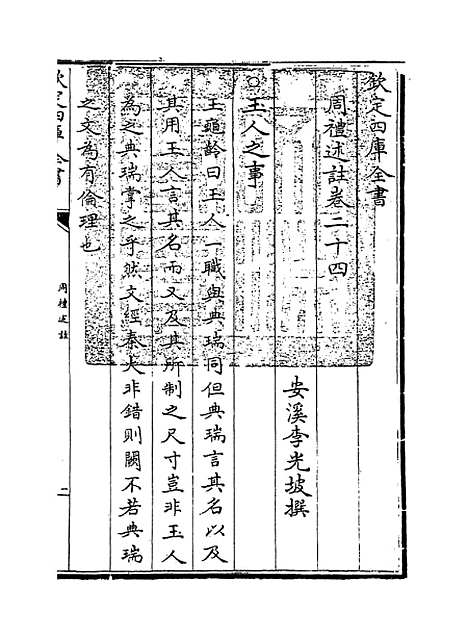 欽定四庫全書
周禮述註卷二十四
安溪李光坡撰
○玉人之事
王龜齡曰玉人一職與典瑞同但典瑞言其名以及
其用玉人言其名而又及其所制之尺寸豈非玉人
為之典瑞掌之乎然文經秦火非錯則闕不若典瑞
之文為有倫理也
欽定四庫全書
周禮述註